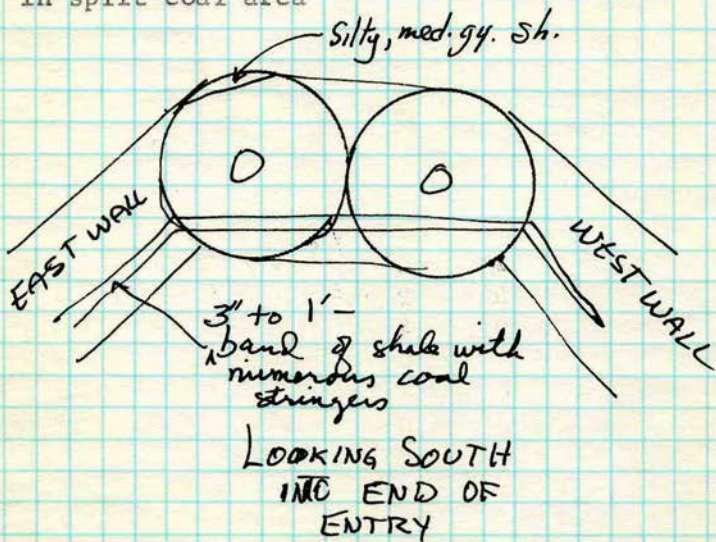 in split coal area
Silty, med. gy. sh.
EAST WALL
WEST WALL
3" to 1' -
band of shale with
numerous coal
stringers
LOOKING SOUTH
INTO END OF
ENTRY